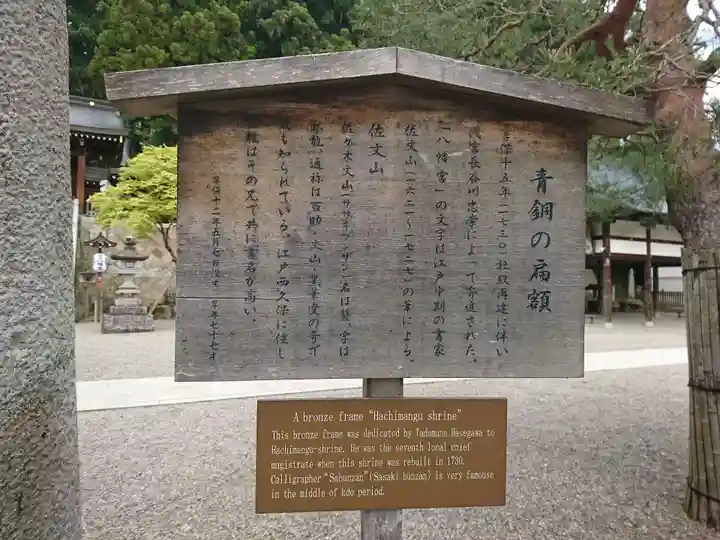 青銅の扁額
享保十五年(一七三〇)社殿再建に伴い
長谷川忠崇によって寄進された。
「八幡宮」の文字は江戸中期の書家
佐文山(一六二一~一七二七)の筆による。
佐文山
佐々木文山(ササキブンザン)名は 字は
通称は百助・文山・
も知られている。江戸西久保に住し
はその兄で共に書名が高い。
享保十二年五月七日没す 享年七十七才
A bronze frame "Hachimangu shrine"
This bronze frame was dedicated by Tadomune Hasegawa to
Hachimangu-shrine. He was the seventh local chief
magistrate when this shrine was rebuilt in 1730.
Calligrapher "Sabunzan"(Sasaki bunzan) is very famouse
in the middle of kdo period.